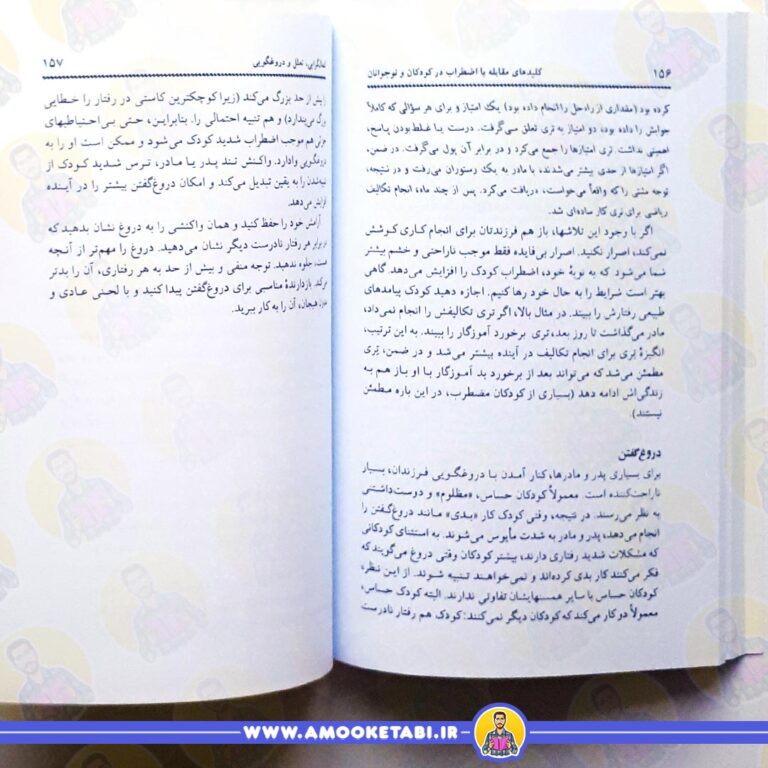 ۱۵۶ کلیدهای مقابله با اضطراب در کودکان و نوجوانان
کرده بود (مقداری از راه‌حل را انجام داده بود) یک امتیاز و برای هر سؤالی که کاملاً
جوابش را داده بود، دو امتیاز به تری تعلق می‌گرفت. درست یا غلط بودن پاسخ،
اهمیتی نداشت. تری امتیازها را جمع می‌کرد و در برابر آن پول می‌گرفت. در ضمن،
اگر امتیازها از حدی بیشتر می‌شدند، با مادر به یک رستوران می‌رفت و در نتیجه،
توجه مثبتی را که واقعاً می‌خواست، دریافت می‌کرد. پس از چند ماه، انجام تکالیف
ریاضی برای تری کار ساده‌ای شد.
اگر با وجود این تلاشها، باز هم فرزندتان برای انجام کاری کوشش
نمی‌کند، اصرار نکنید. اصرار بی‌فایده فقط موجب ناراحتی و خشم بیشتر
شما می‌شود که به نوبهٔ خود، اضطراب کودک را افزایش می‌دهد. گاهی
بهتر است شرایط را به حال خود رها کنیم. اجازه دهید کودک پیامدهای
طبیعی رفتارش را ببیند. در مثال بالا، اگر تری تکالیفش را انجام نمی‌داد،
مادر می‌گذاشت تا روز بعد، تری برخورد آموزگار را ببیند. به این ترتیب،
انگیزهٔ تری برای انجام تکالیف در آینده بیشتر می‌شد و در ضمن، تری
مطمئن می‌شد که می‌تواند بعد از برخورد بد آموزگار با او باز هم به
زندگی‌اش ادامه دهد (بسیاری از کودکان مضطرب، در این باره مطمئن
نیستند).
دروغ گفتن
برای بسیاری پدر و مادرها، کنار آمدن با دروغگویی فرزندان، بسیار
ناراحت‌کننده است. معمولاً کودکان حساس، «مظلوم» و دوست‌داشتنی
به نظر می‌رسند. در نتیجه، وقتی کودک کار «بدی» مانند دروغ گفتن را
انجام می‌دهد، پدر و مادر به شدت مأیوس می‌شوند. به استثنای کودکانی
که مشکلات شدید رفتاری دارند، بیشتر کودکان وقتی دروغ می‌گویند که
فکر می‌کنند کار بدی کرده‌اند و نمی‌خواهند تنبیه شوند. از این نظر،
کودکان حساس با سایر همسنهایشان تفاوتی ندارند. البته کودک حساس،
معمولاً دو کار می‌کند که کودکان دیگر نمی‌کنند: کودک هم رفتار نادرست
تعلل و دروغگویی ۱۵۷
را بیش از حد بزرگ می‌کند (زیرا کوچکترین کاستی در رفتار را خطایی
بزرگ می‌پندارد) و هم تنبیه احتمالی را. بنابراین، حتی بی‌احتیاطیهای
جزئی هم موجب اضطراب شدید کودک می‌شود و ممکن است او را به
دروغگویی وادارد. واکنش تند پدر یا مادر، ترس شدید کودک از
تنبیه شدن را به یقین تبدیل می‌کند و امکان دروغ گفتن بیشتر را در آینده
افزایش می‌دهد.
آرامش خود را حفظ کنید و همان واکنشی را به دروغ نشان بدهید که
در برابر هر رفتار نادرست دیگر نشان می‌دهید. دروغ را مهم‌تر از آنچه
هست، جلوه ندهید. توجه منفی و بیش از حد به هر رفتاری، آن را بدتر
می‌کند. بازدارندهٔ مناسبی برای دروغ گفتن پیدا کنید و با لحنی عادی و
بدون هیجان، آن را به کار ببرید.
WWW.AMOOKETABI.IR